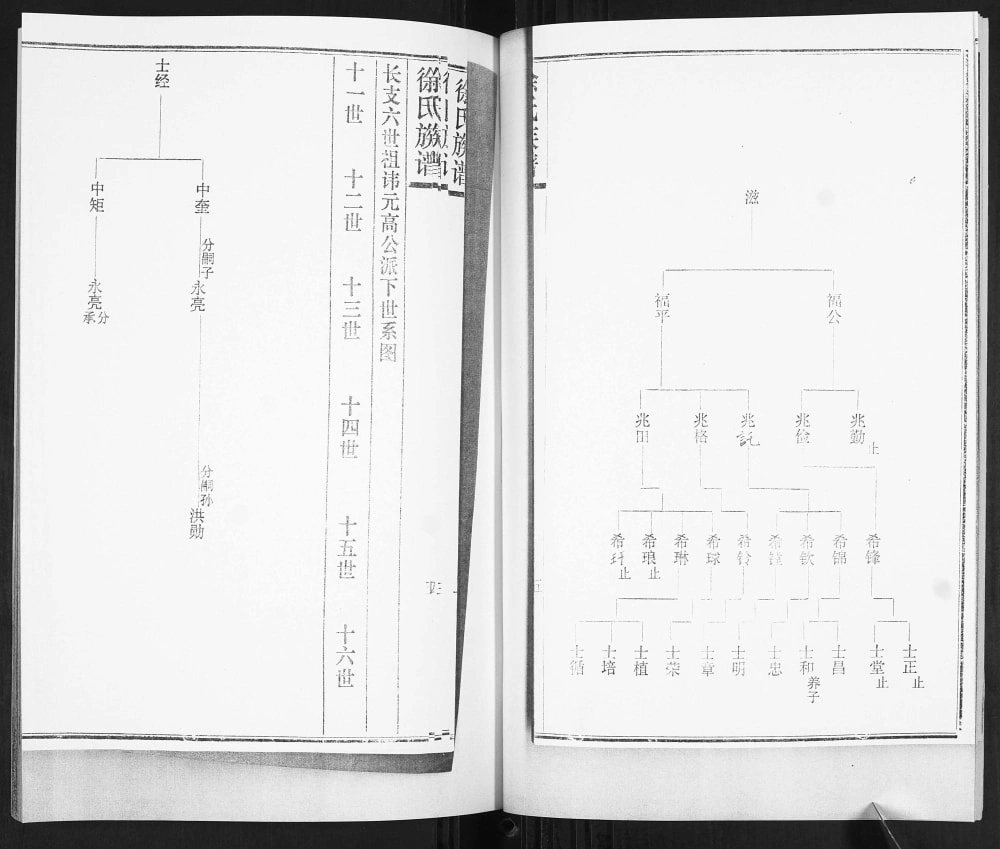 滋
福公
福平
兆勤
止
兆俭
兆託
兆格
兆田
希锋
希锦
希钦
希铃
希球
希琳
希琅
止
希玕
止
士正
止
士堂
止
士昌
士和
养子
士忠
士明
士章
士荣
士植
士培
士循
徐氏族谱
徐氏族谱
长支六世祖讳元高公派下世系图
十一世 十二世 十三世 十四世 十五世 十六世
士经
中奎
分嗣子
永亮
分嗣孙
洪勋
中矩
永亮
分承